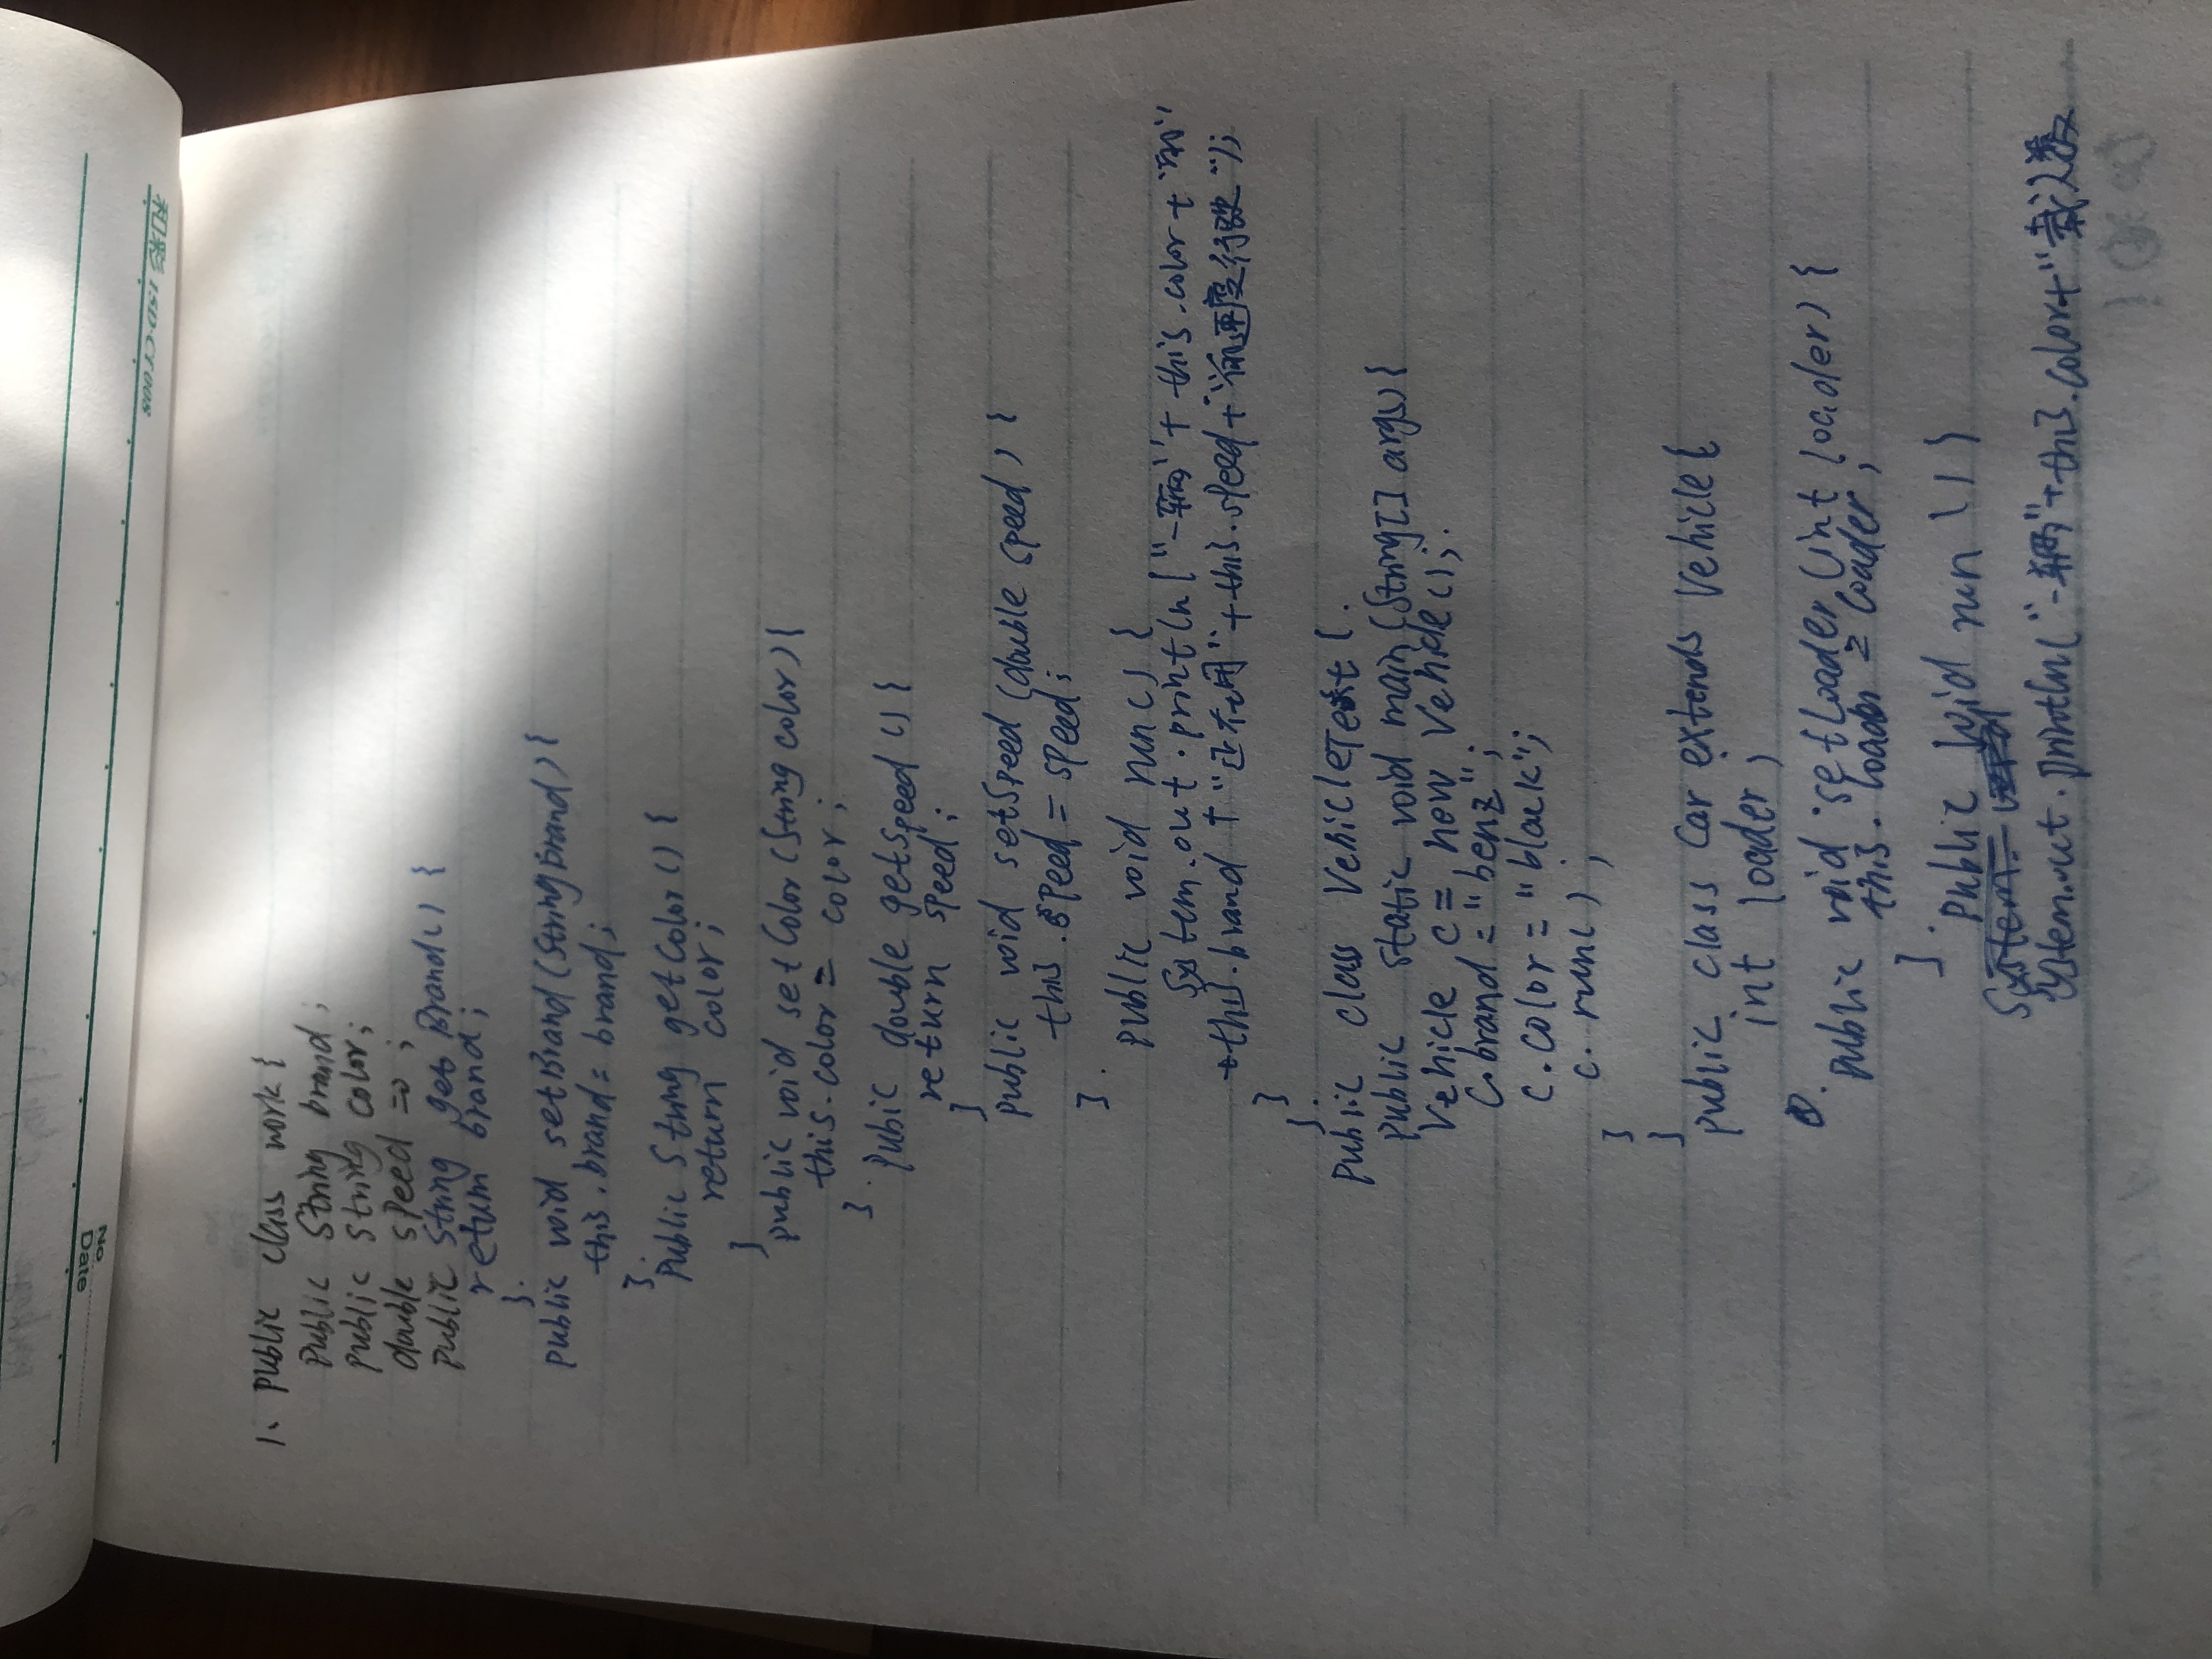 和彩 JSD-CY008
No.
Date
1、public class work {
public String brand;
public String color;
double speed =0;
public String getBrand() {
return brand;
}
public void setBrand(String brand) {
this.brand = brand;
}
public String getColor() {
return color;
}
public void setColor(String color) {
this.color = color;
}
public double getSpeed() {
return speed;
}
public void setSpeed(double speed) {
this.speed = speed;
}
public void run() {
System.out.println("一辆"+ this.color + "的"
+this.brand + "正在用"+this.speed+"的速度行驶");
}
}
public class VehicleTest {
public static void main(String[] args){
Vehicle c = new Vehicle();
c.brand = "benz";
c.color = "black";
c.run();
}
}
public class Car extends Vehicle{
int loader;
public void setLoader(int loader) {
this.loader = loader;
}
public void run() {
System.out.println("一辆"+this.color+"载人数